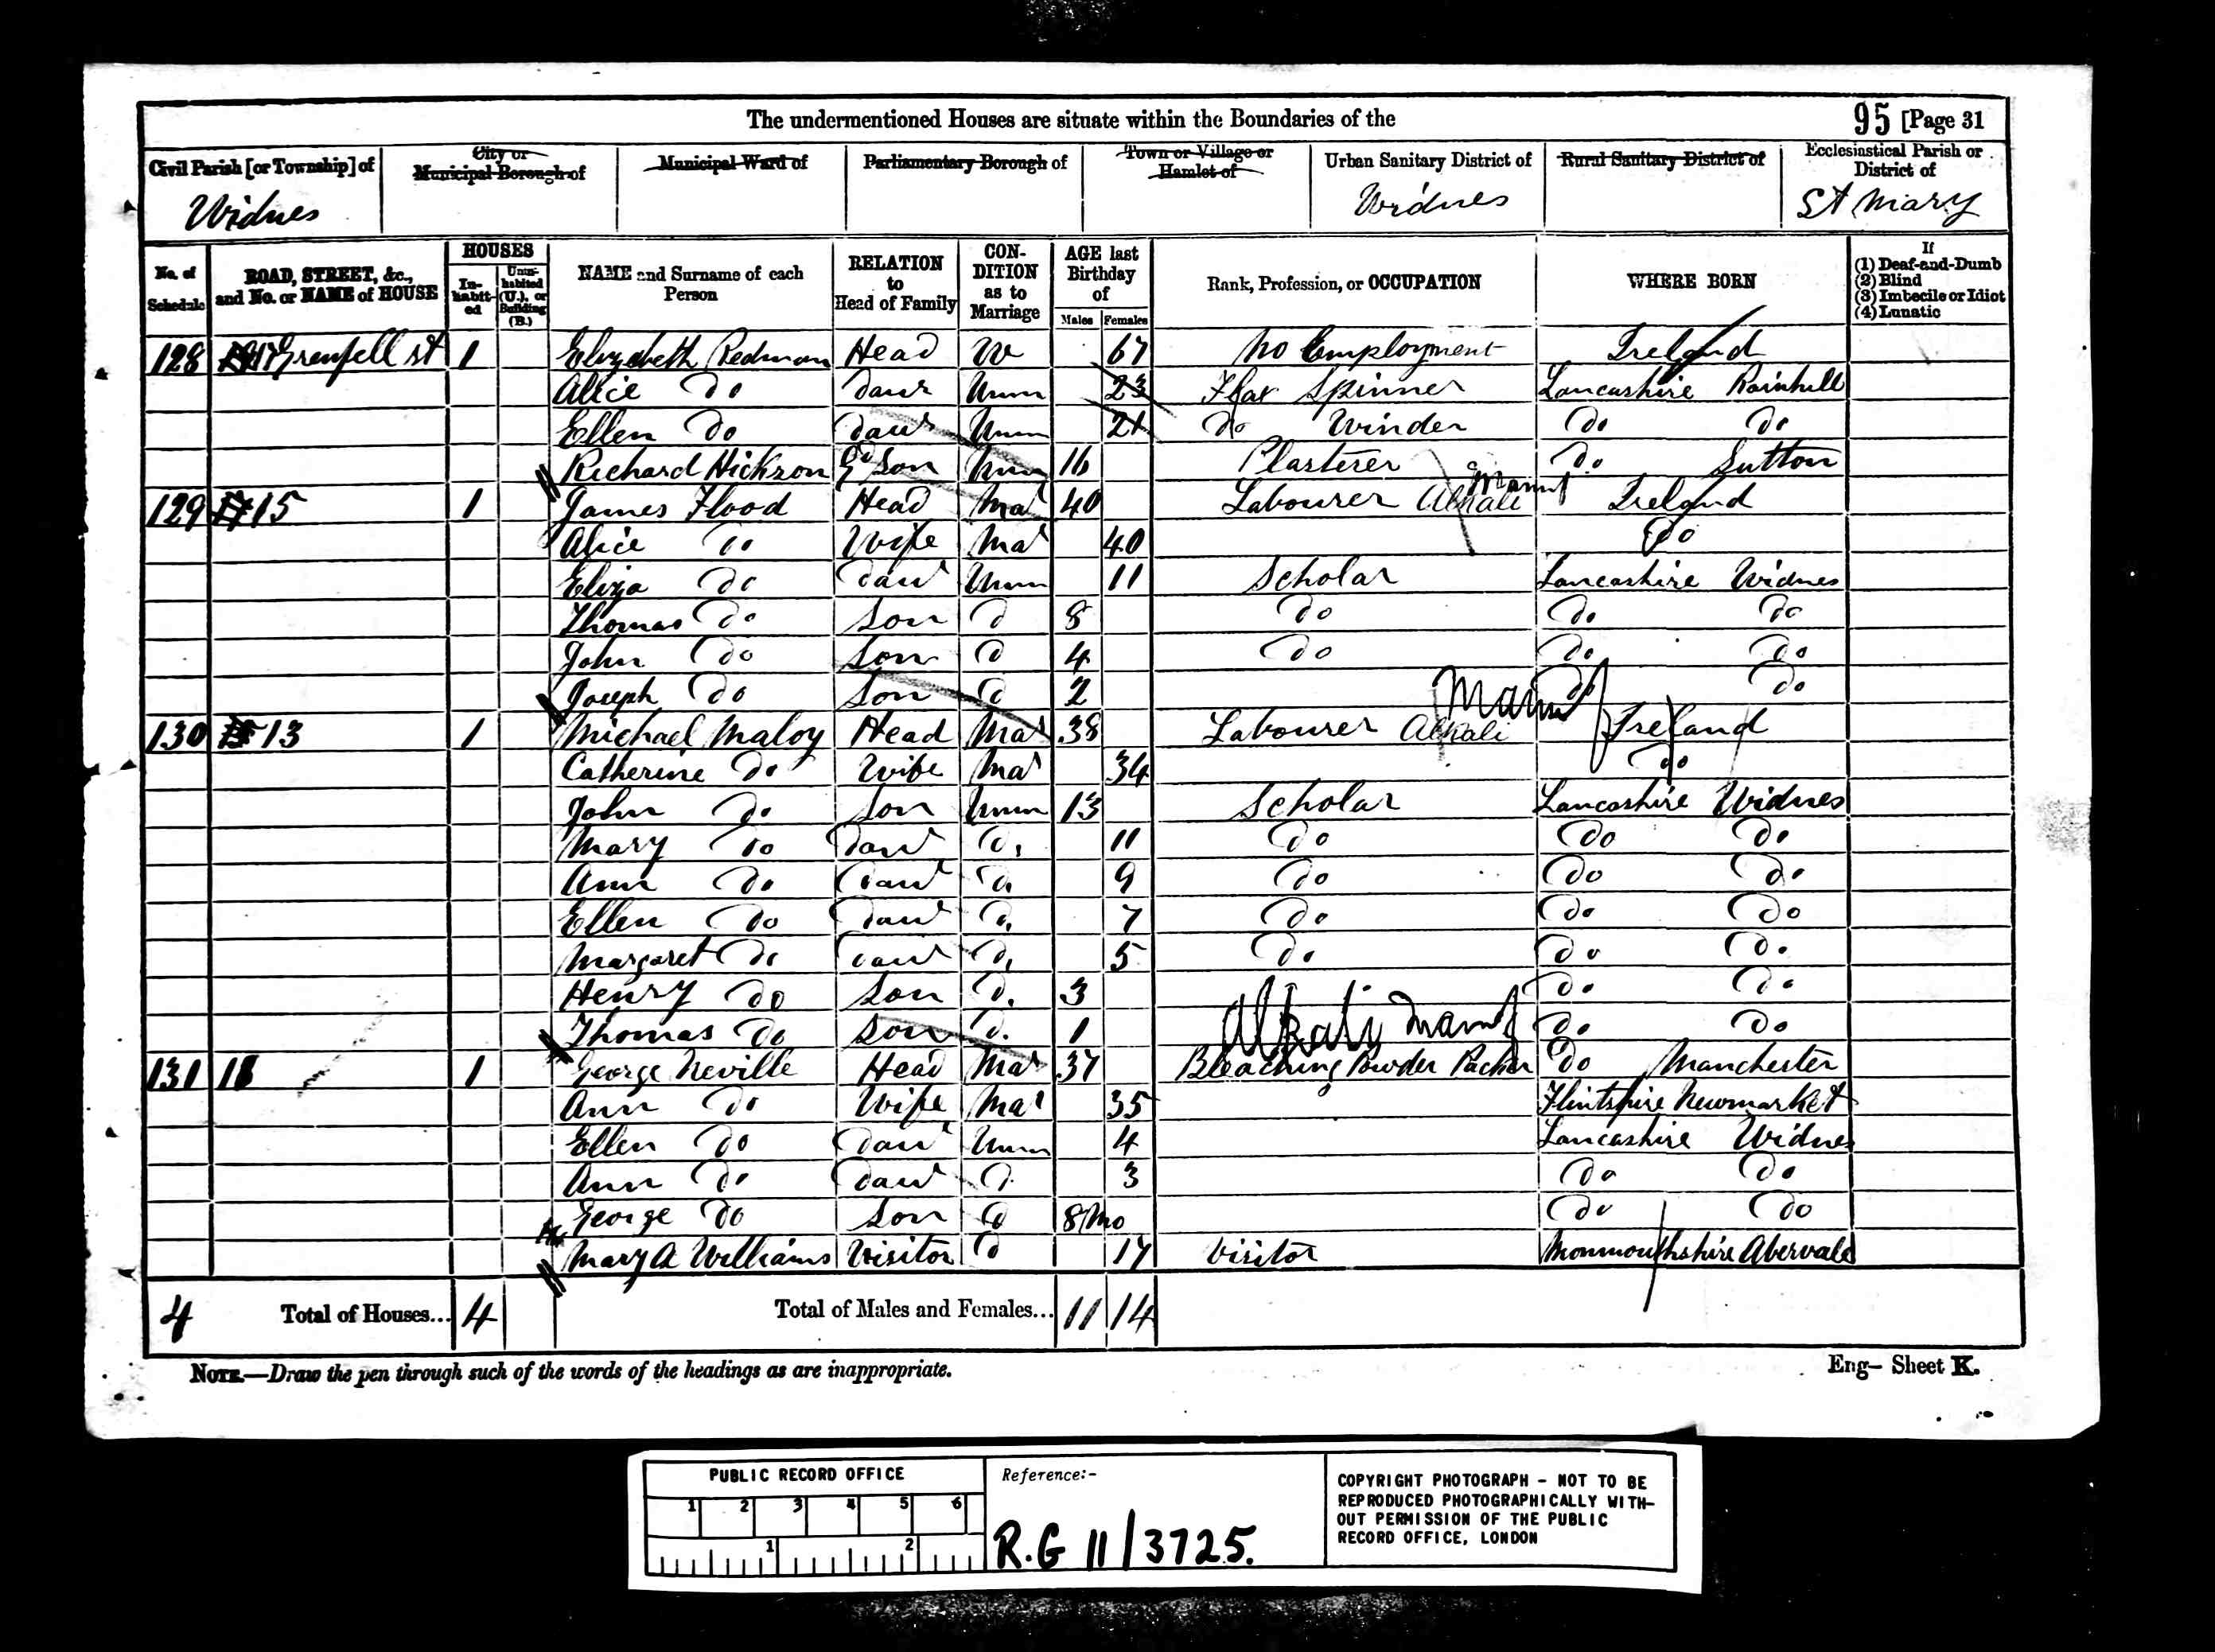 The undermentioned Houses are situate within the Boundaries of the 95 [Page 31
Civil Parish [or Township] of City or Municipal Borough of Municipal Ward of Parliamentary Borough of Town or Village or Hamlet of Urban Sanitary District of Rural Sanitary District of Ecclesiastical Parish or District of
Widnes Widnes St Mary
No. of Schedule ROAD, STREET, &c., and No. or NAME of HOUSE HOUSES Inhabited Uninhabited (U.), or Building (B.) NAME and Surname of each Person RELATION to Head of Family CONDITION as to Marriage AGE last Birthday of Males Females Rank, Profession, or OCCUPATION WHERE BORN If (1) Deaf-and-Dumb (2) Blind (3) Imbecile or Idiot (4) Lunatic
128 17 Grenfell st 1 Elizabeth Redman Head W 67 No Employment Ireland
Alice Do Daur Unm 23 Flax Spinner Lancashire Rainhill
Ellen Do Daur Unm 21 Do Winder Do Do
Richard Hickson Gd Son Unm 16 Plasterer Do Sutton
129 15 1 James Flood Head Mar 40 Labourer Alkali Manuf Ireland
Alice Do Wife Mar 40 Do
Eliza Do Daur Unm 11 Scholar Lancashire Widnes
Thomas Do Son D 8 Do Do Do
John Do Son D 4 Do Do Do
Joseph Do Son D 2 Do Do
130 13 1 Michael Maloy Head Mar 38 Labourer Alkali Manuf Ireland
Catherine Do Wife Mar 34 Do
John Do Son Unm 13 Scholar Lancashire Widnes
Mary Do Daur D. 11 Do Do Do
Ann Do Daur D. 9 Do Do Do
Ellen Do Daur D. 7 Do Do Do
Margaret Do Daur D. 5 Do Do Do
Henry Do Son D. 3 Do Do
Thomas Do Son D. 1 Do Do
Alkali Manuf
131 1 George Neville Head Mar 37 Bleaching Powder Packer Do Manchester
Ann Do Wife Mar 35 Flintshire Newmarket
Ellen Do Daur Unm 4 Lancashire Widnes
Ann Do Daur D. 3 Do Do
George Do Son D 8 Mo Do Do
Mary A Williams Visitor D 17 Visitor Monmouthshire Abervale
4 Total of Houses... 4 Total of Males and Females... 11 14
NOTE.—Draw the pen through such of the words of the headings as are inappropriate. Eng- Sheet K.
PUBLIC RECORD OFFICE
1 2 3 4 5 6
1 2
Reference:-
R.G 11/3725.
COPYRIGHT PHOTOGRAPH - NOT TO BE
REPRODUCED PHOTOGRAPHICALLY WITH-
OUT PERMISSION OF THE PUBLIC
RECORD OFFICE, LONDON